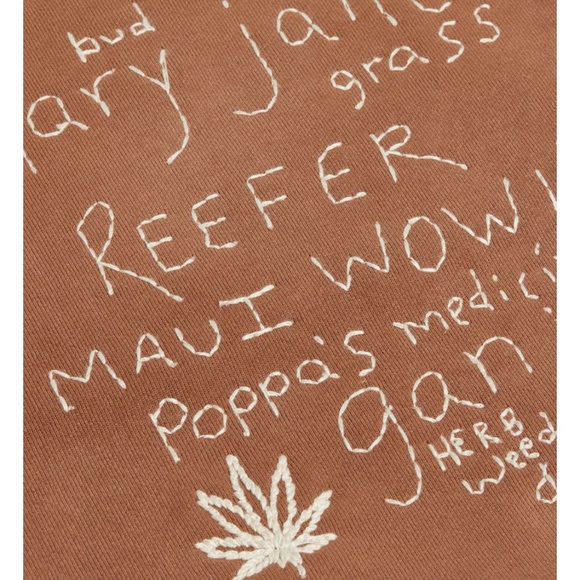 bud
ary Jane
grass
REEFER
MAUI WOW
Poppa's medici
gan
HERB
weed